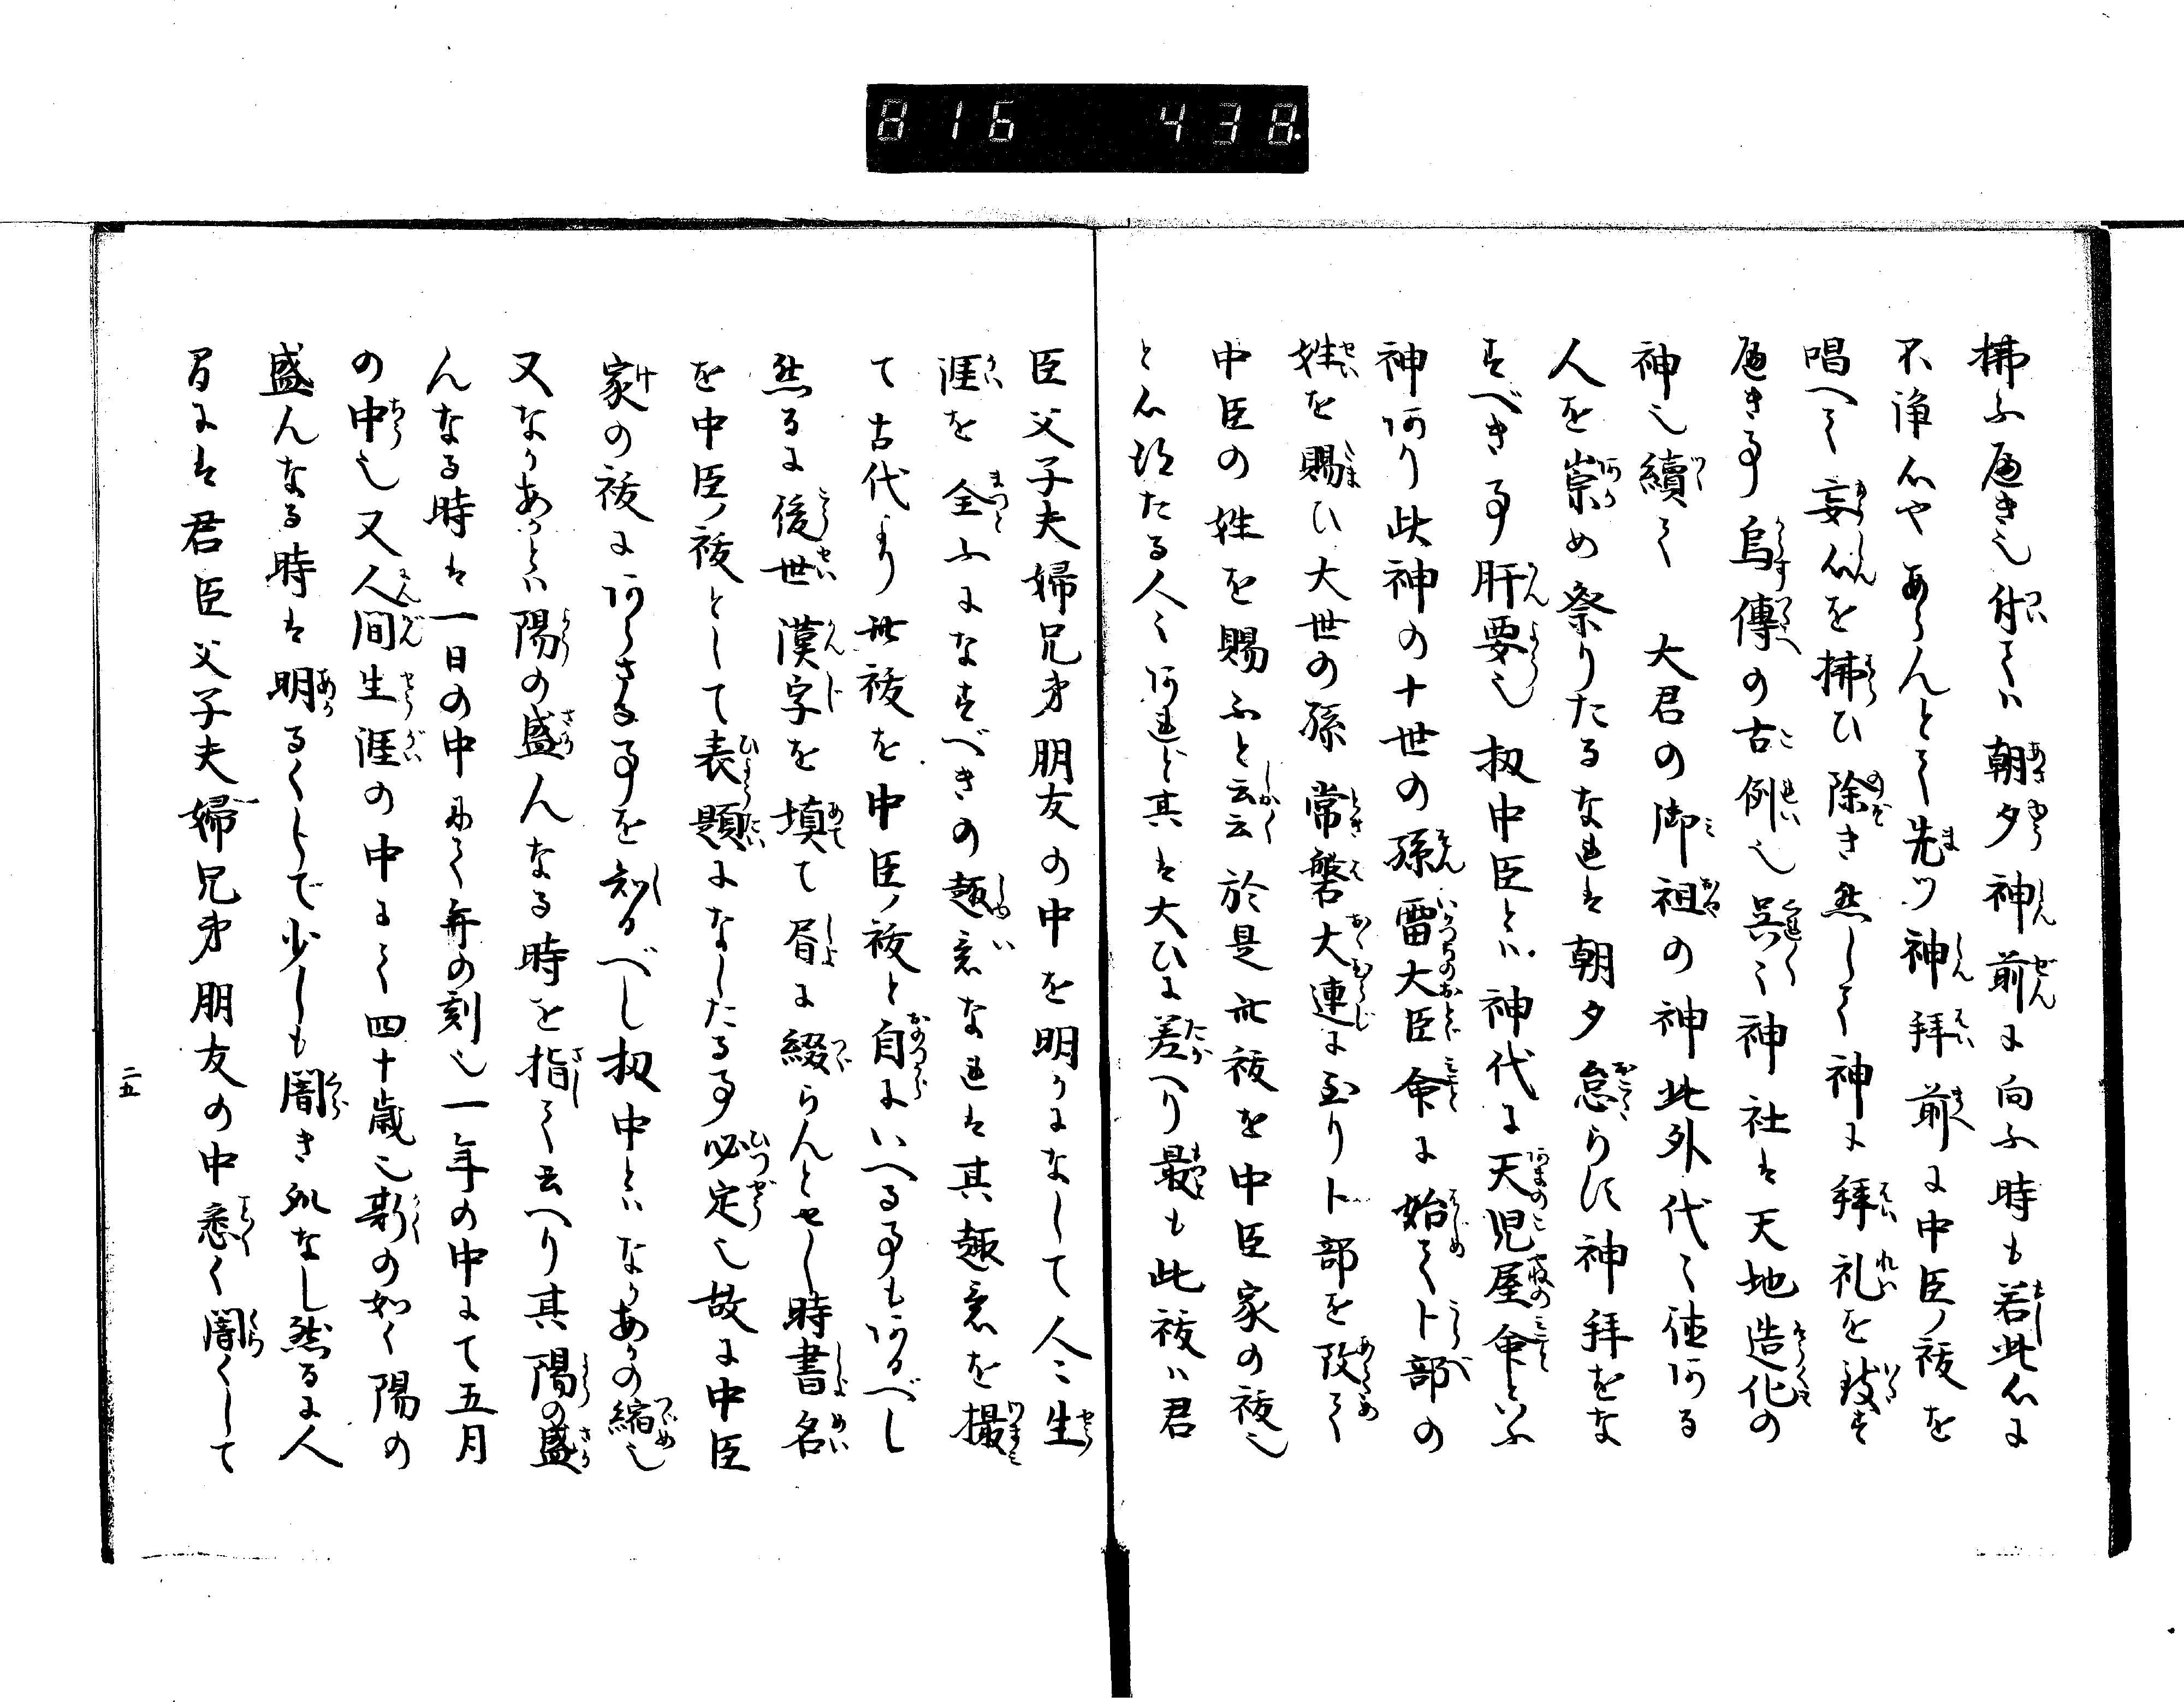 816 438
拂ふ可き也付ては朝夕神前に向ふ時も若此心に
不淨心やあらんとて先ツ神拜前に中臣ノ祓を
唱へて妄心を拂ひ除き然して神に拜礼を致す
可き事烏傳の古例也呉々神社は天地造化の
神也續て 大君の御祖の神此外代々徳ある
人を崇め祭りたるなれは朝夕怠らす神拜をな
すべき事肝要也扨中臣とは神代に天児屋命といふ
神あり此神の十世の孫雷大臣命に始てト部の
姓を賜ひ大世の孫常磐大連に至りト部を改て
中臣の姓を賜ふと云云於是此祓を中臣家の祓也
と心得たる人々あれど其は大ひに差へり最も此祓ハ君
臣父子夫婦兄弟朋友の中を明らかになして人々生
涯を全ふになすべきの趣意なれは其趣意を撮
て古代より此祓を中臣ノ祓と自にいへる事もあるべし
然るに後世漢字を填て眉に綴らんとせし時書名
を中臣ノ祓として表題になしたる事必定也故に中臣
家の祓にあらさる事を知るべし扨中とはなかあかの縮也
又なかあかとは陽の盛んなる時を指て云へり其陽の盛
んなる時は一日の中にて午の刻也一年の中にて五月
の中也又人間生涯の中にて四十歳也斯の如く陽の
盛んなる時は明るくして少しも闇き処なし然るに人
間には君臣父子夫婦兄弟朋友の中悉く闇くして
二五